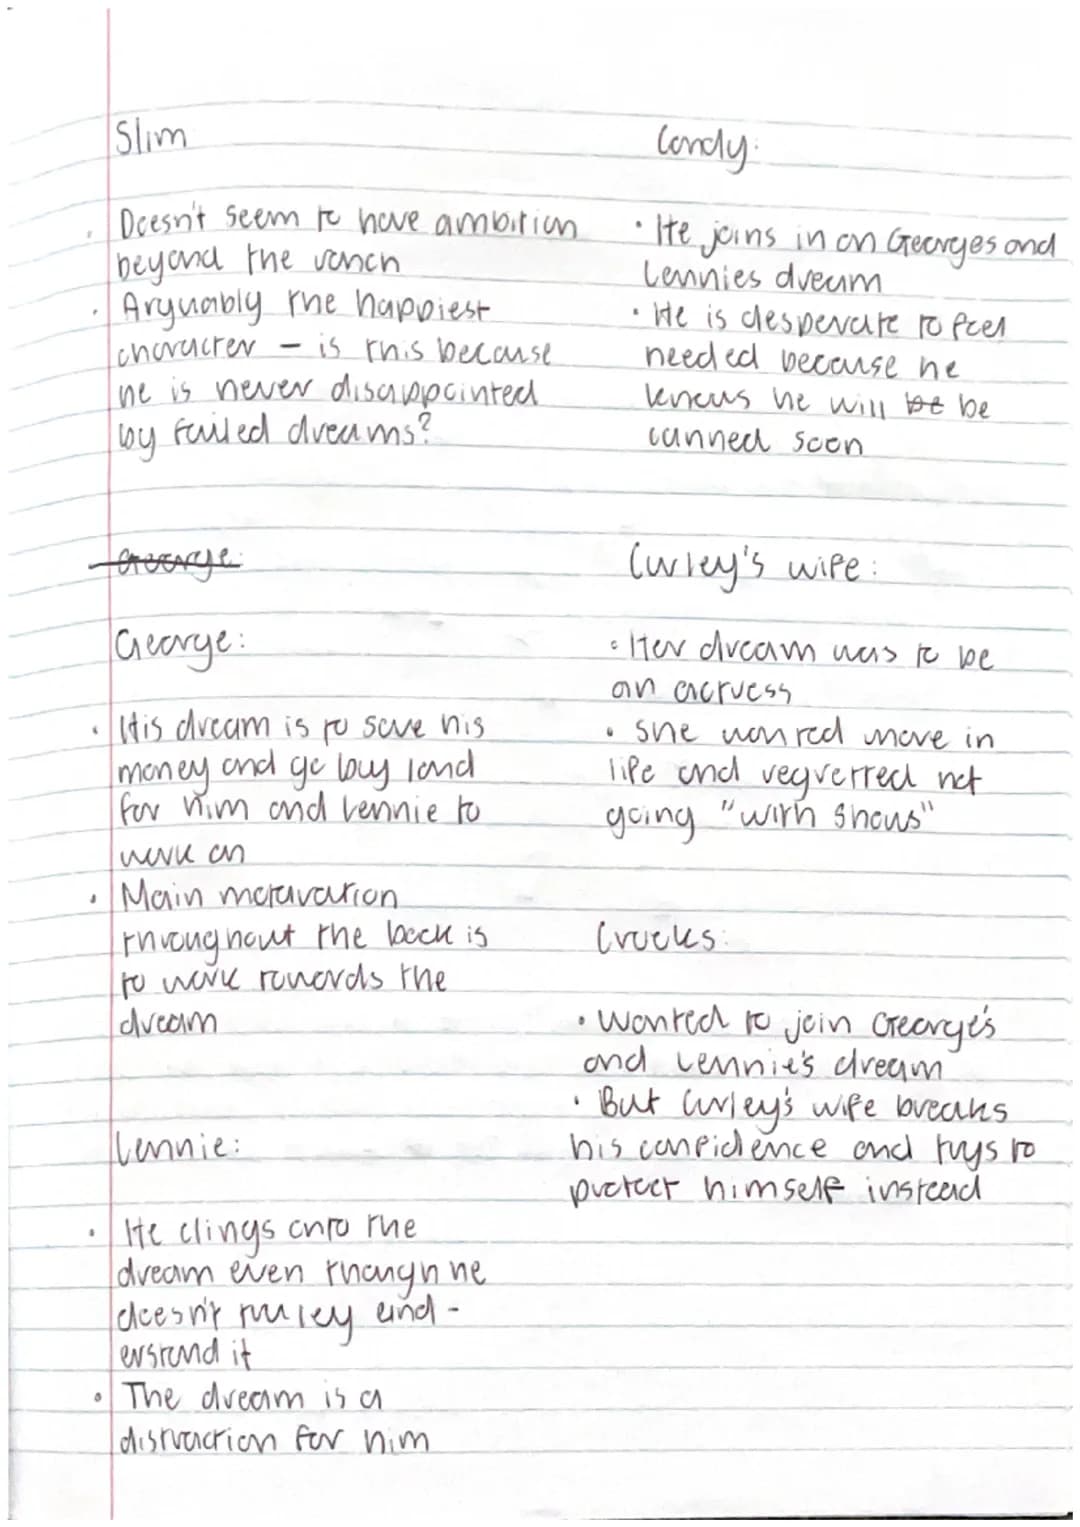 Slim
Doesn't seem to have ambition
beyond the ranch
Arguably the happiest
character - is this because
he is never disappointed
by failed dreams?
George:
George:
• His dream is to save his
money and go buy land
for him and Lennie to
work on
• Main motavation
throughout the book is
to work towards the
dream
Lennie:
• He clings onto the
dream even though he
doesn't truley und-
erstand it
• The dream is a
distraction for him
Candy:
• He joins in on Georges and
Lennies dream
• He is desperate to feel
needed because he
knows he will be be
canned soon
Curley's wife:
• Her dream was to be
an actress
• She wanted more in
life and regretted not
going "with shows"
Crooks:
• Wanted to join George's
and Lennie's dream
• But Curley's wife breaks
his confidence and trys to
protect himself instead